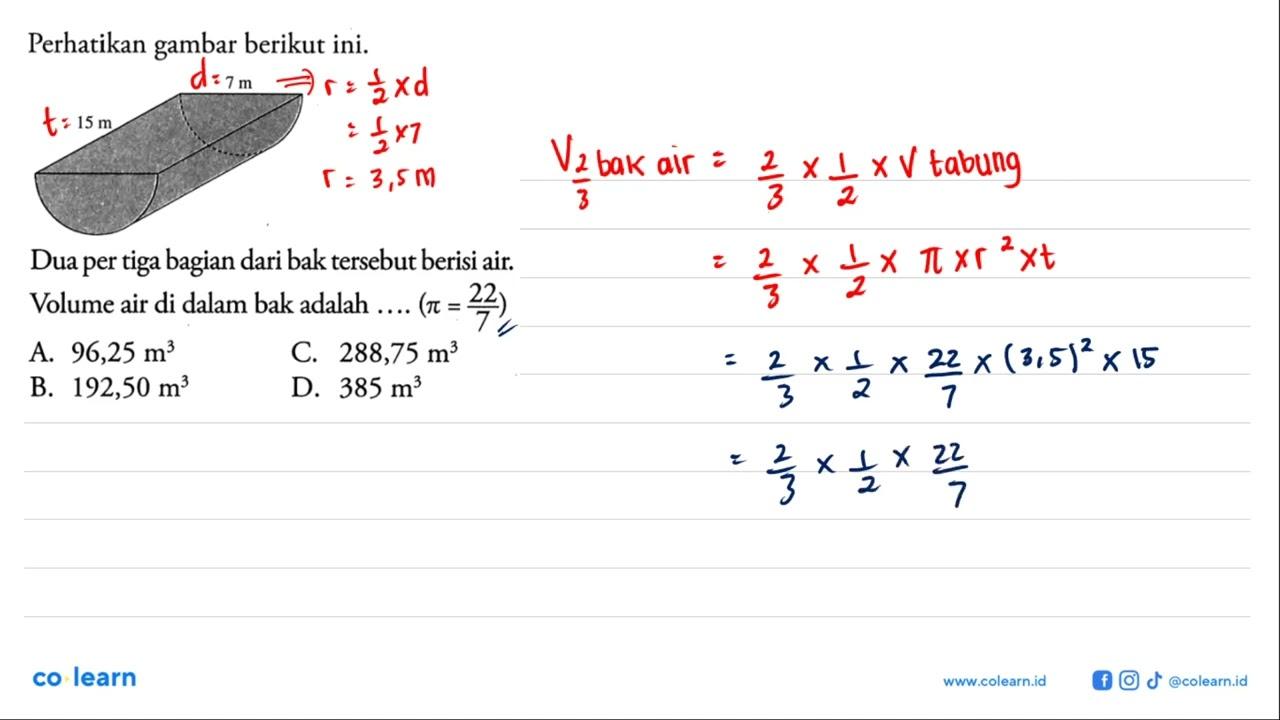 Perhatikan gambar berikut ini.
d = 7 m ⟹ r = 1/2 × d
t = 15 m
= 1/2 × 7
r = 3,5 M
Dua per tiga bagian dari bak tersebut berisi air.
Volume air di dalam bak adalah .... (π = 22/7)
A. 96,25 m³
C. 288,75 m³
B. 192,50 m³
D. 385 m³
V 2/3 bak air = 2/3 × 1/2 × V tabung
= 2/3 × 1/2 × π × r² × t
= 2/3 × 1/2 × 22/7 × (3,5)² × 15
= 2/3 × 1/2 × 22/7
co learn
www.colearn.id
@colearn.id